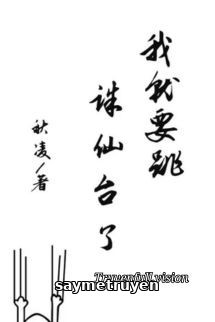 我就要跳
诛仙台了
秋凌/著
Truyenfull vision
saymetruyen